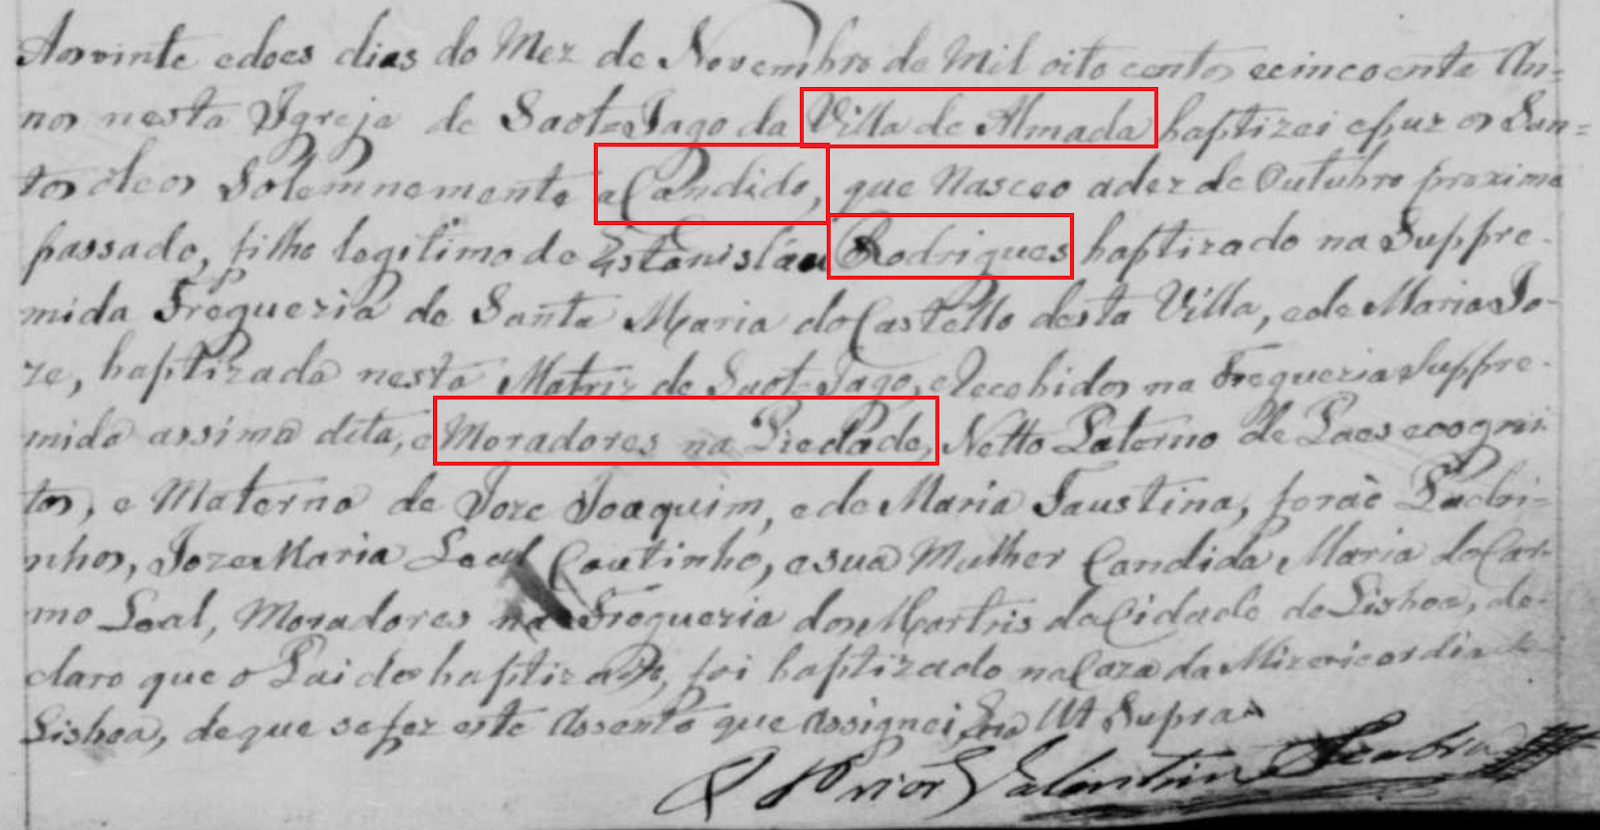 Aos vinte e does dias do Mez de Novembro de Mil oito centos e cincoente An=
nos nesta Igreja de Saot=Iago da Villa de Almada baptizei e puz os San=
tos óleos Solemnemente a Candido, que Nasceo a dez de Outubro proximo
passado, filho legitimo de Estanisláu Rodrigues baptizado na Suppre-
mida Freguezia de Santa Maria do Castello desta Villa, e de Maria Jo-
ze, baptizada nesta Matriz de Saot=Iago, e Recebidos na Freguezia Suppre-
mida assima dita, e Moradores na Piedade, Netto Paterno de Paes ecogni-
tos, e Materno de Joze Joaquim, e de Maria Faustina, foraè Padri=
nhos, Joze Maria Leal Coutinho, e sua Mulher Candida Maria do Car-
mo Leal, Moradores na Freguezia dos Martris da Cidade de Lisboa, de-
claro que o Pai do baptizado, foi baptizado na Caza da Mizericordia de
Lisboa, de que se fez este Assento que Assignei, Era Ut Supra
O Prior Valentim